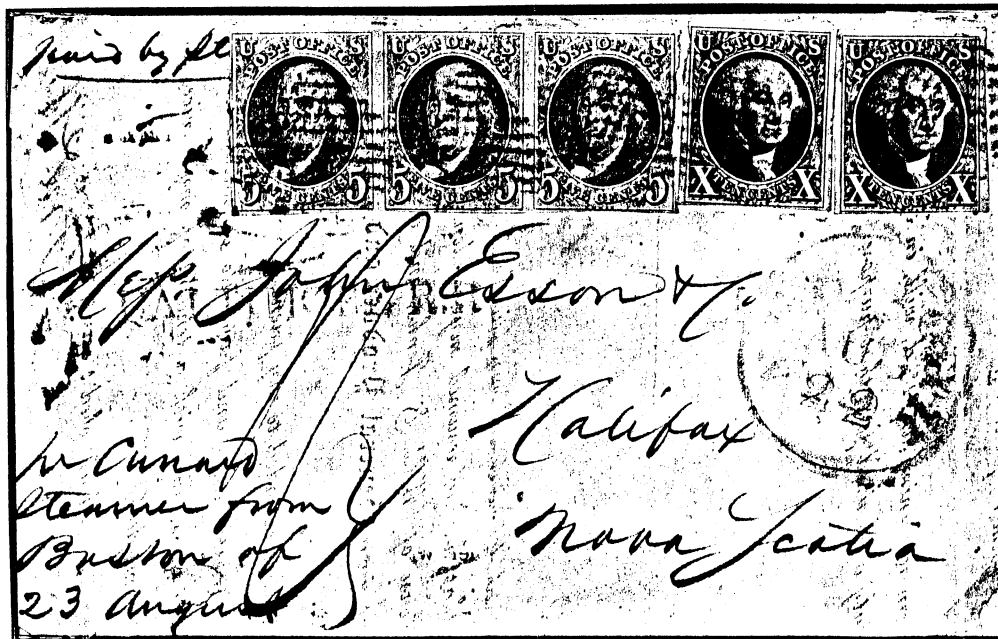 paid by St
U POST OFFICE S
5 FIVE CENTS 5
U POST OFFICE S
5 FIVE CENTS 5
U POST OFFICE S
5 FIVE CENTS 5
U POST OFFICE S
X TEN CENTS X
U POST OFFICE S
X TEN CENTS X
Mess. John Esson & C.
Halifax
Nova Scotia
per Cunard
Steamer from
Boston of
23 August